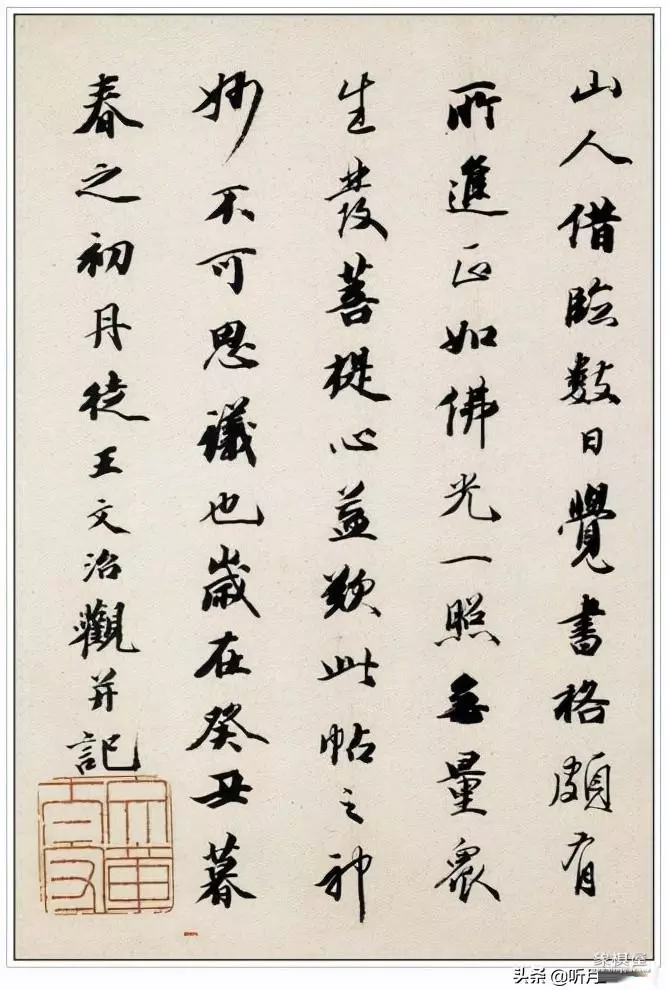 山人借臨數日覺書格頗有
所進正如佛光一照無量眾
生發菩提心益歎此帖之神
妙不可思議也歲在癸丑暮
春之初丹徒王文治觀并記
象棋屋
头条 @听月